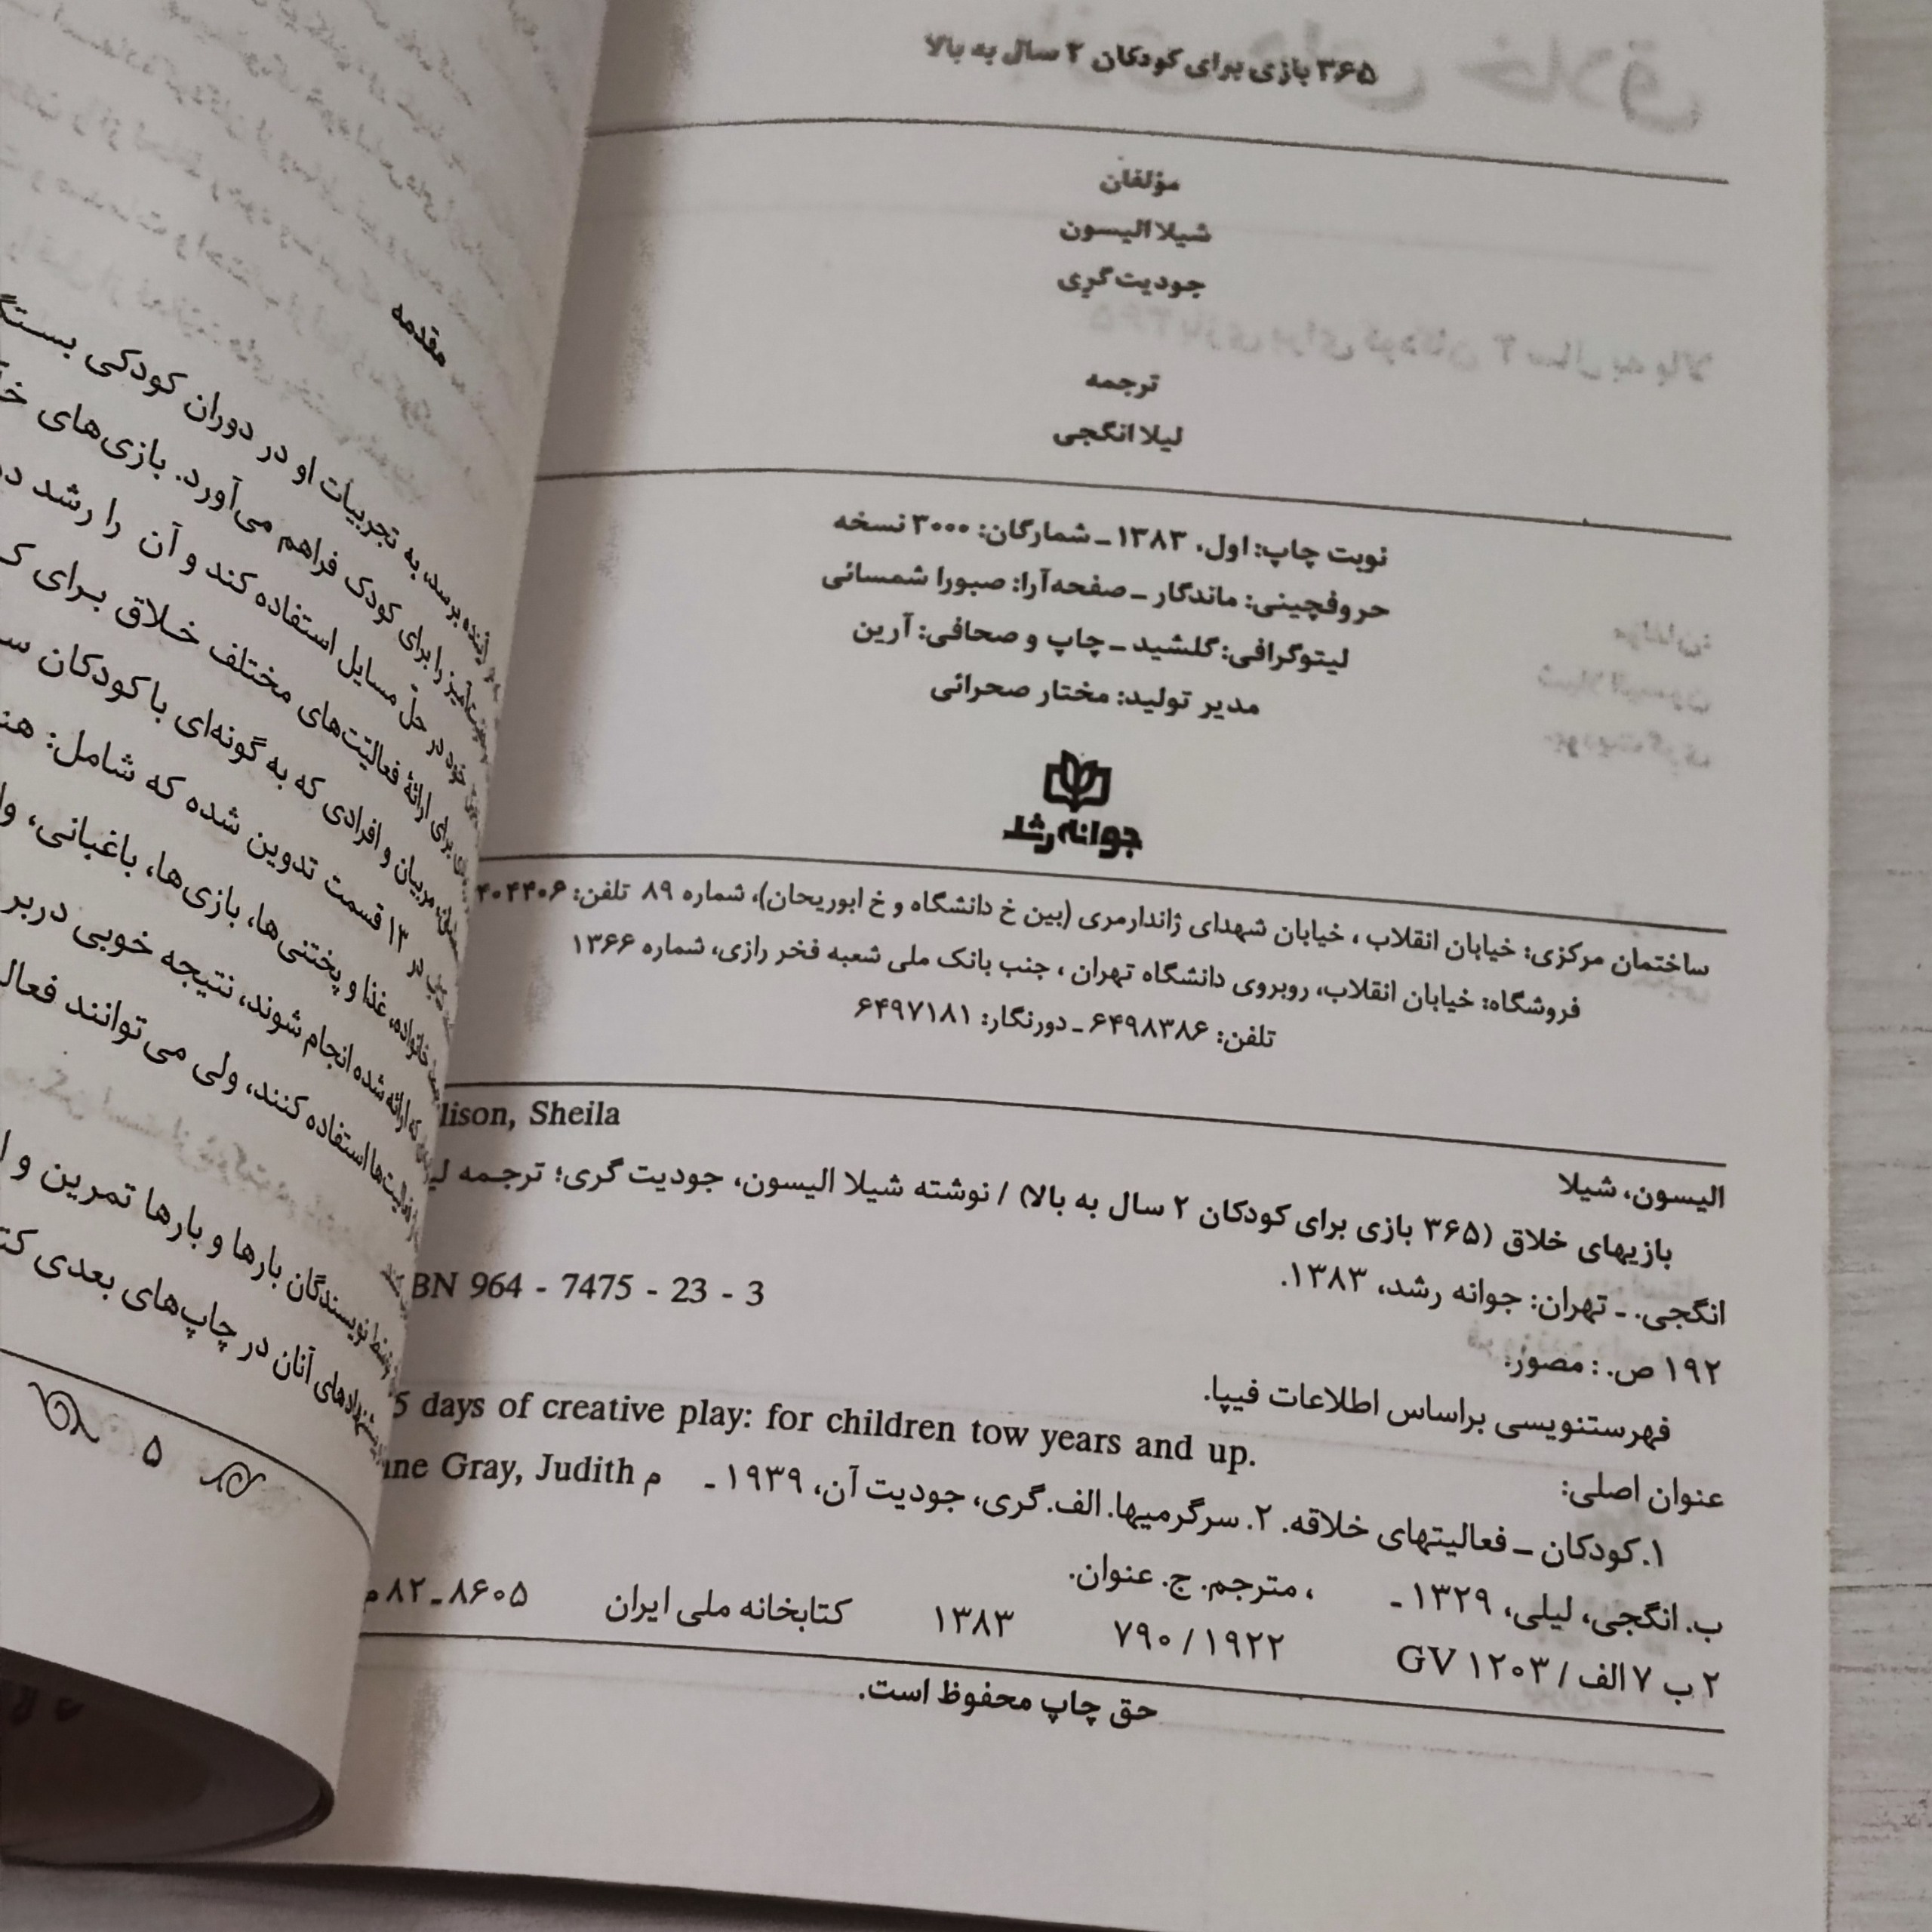 ۳۶۵ بازی برای کودکان ۲ سال به بالا
مؤلفان
شیلا الیسون
جودیت گری
ترجمه
لیلا انگجی
نوبت چاپ: اول، ۱۳۸۳ ـ شمارگان: ۳۰۰۰ نسخه
حروفچینی: ماندگار ـ صفحه‌آرا: صبورا شمسائی
لیتوگرافی: گلشید ـ چاپ و صحافی: آرین
مدیر تولید: مختار صحرائی
جوانه رشد
ساختمان مرکزی: خیابان انقلاب، خیابان شهدای ژاندارمری (بین خ دانشگاه و خ ابوریحان)، شماره ۸۹ تلفن: ۴۰۴۴۰۶
فروشگاه: خیابان انقلاب، روبروی دانشگاه تهران، جنب بانک ملی شعبه فخر رازی، شماره ۱۳۶۶
تلفن: ۶۴۹۸۳۸۶ ـ دورنگار: ۶۴۹۷۱۸۱
الیسون، شیلا lison, Sheila
بازیهای خلاق (۳۶۵ بازی برای کودکان ۲ سال به بالا) / نوشته شیلا الیسون، جودیت گری؛ ترجمه
انگجی. ـ تهران: جوانه رشد، ۱۳۸۳.
۱۹۲ ص. : مصور. BN 964 - 7475 - 23 - 3
فهرستنویسی براساس اطلاعات فیپا.
عنوان اصلی: 5 days of creative play: for children tow years and up.
۱. کودکان ـ فعالیتهای خلاقه. ۲. سرگرمیها. الف. گری، جودیت آن، ۱۹۳۹ ـ م Gray, Judith
ب. انگجی، لیلی، ۱۳۲۹ ـ ، مترجم. ج. عنوان.
۲ ب ۷ الف / GV ۱۲۰۳ ۷۹۰/۱۹۲۲ ۱۳۸۳ کتابخانه ملی ایران ۸۶۰۵ ـ ۸۲ م
حق چاپ محفوظ است.
مقدمه
به تجربیات او در دوران کودکی
را برای کودک فراهم می‌آورد. بازی‌های
خود در حلّ مسایل استفاده کند و آن را رشد
برای ارائهٔ فعالیّت‌های مختلف خلاق برای
مربیان و افرادی که به گونه‌ای با کودکان
در ۱۳ قسمت تدوین شده که شامل:
خانواده، غذا و پختنی‌ها، بازی‌ها، باغبانی،
که ارائه شده انجام شوند، نتیجه خوبی
استفاده کنند، ولی می‌توانند
نویسندگان بارها و بارها تمرین و
پیشنهادهای آنان در چاپ‌های بعدی
۵